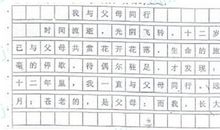 我与父母同行
时间流逝，光阴飞转，十二岁
已与父母共赏花开花落，生命的旅
毫的停歇，待偶尔驻足，才发现
十二年里，我一直与父母同行，远
月；苍老的，是父母；而我，长大